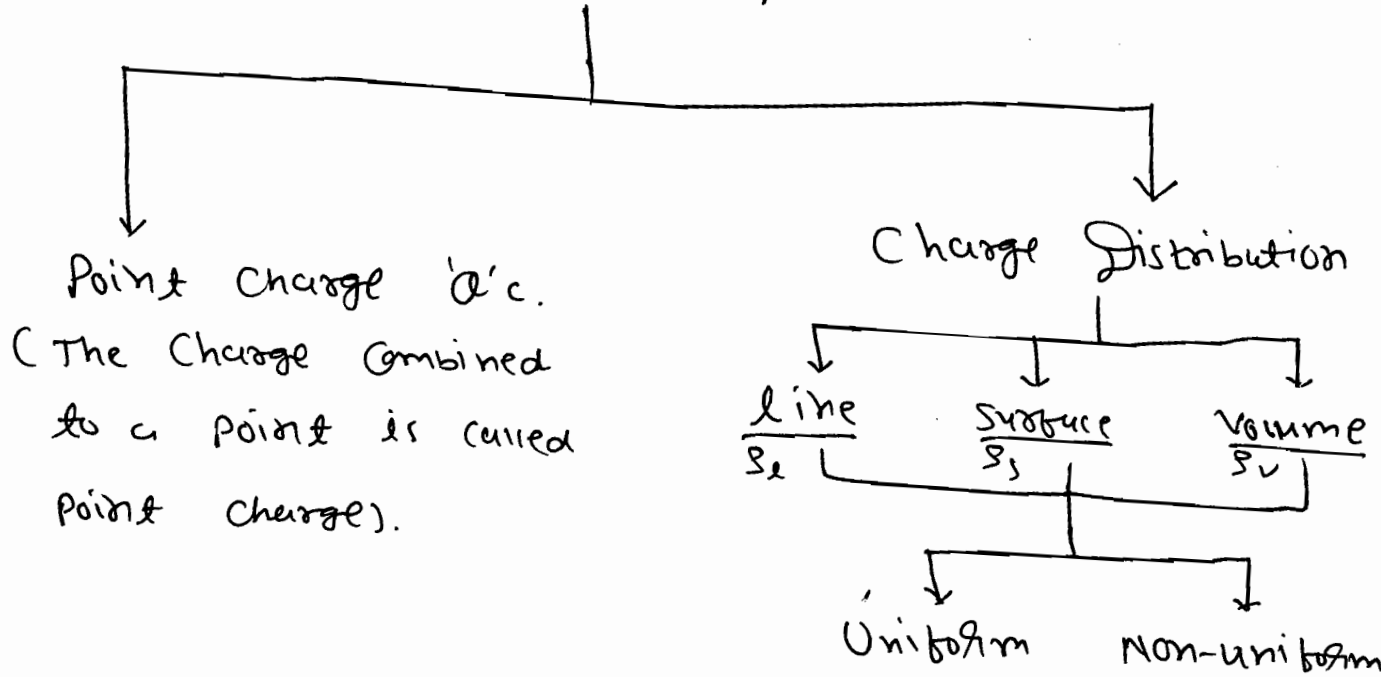 Point Charge 'Q' c.
(The Charge Combined
to a point is called
point charge).
Charge Distribution
line surface volume
ρₗ ρₛ ρᵥ
Uniform Non-uniform